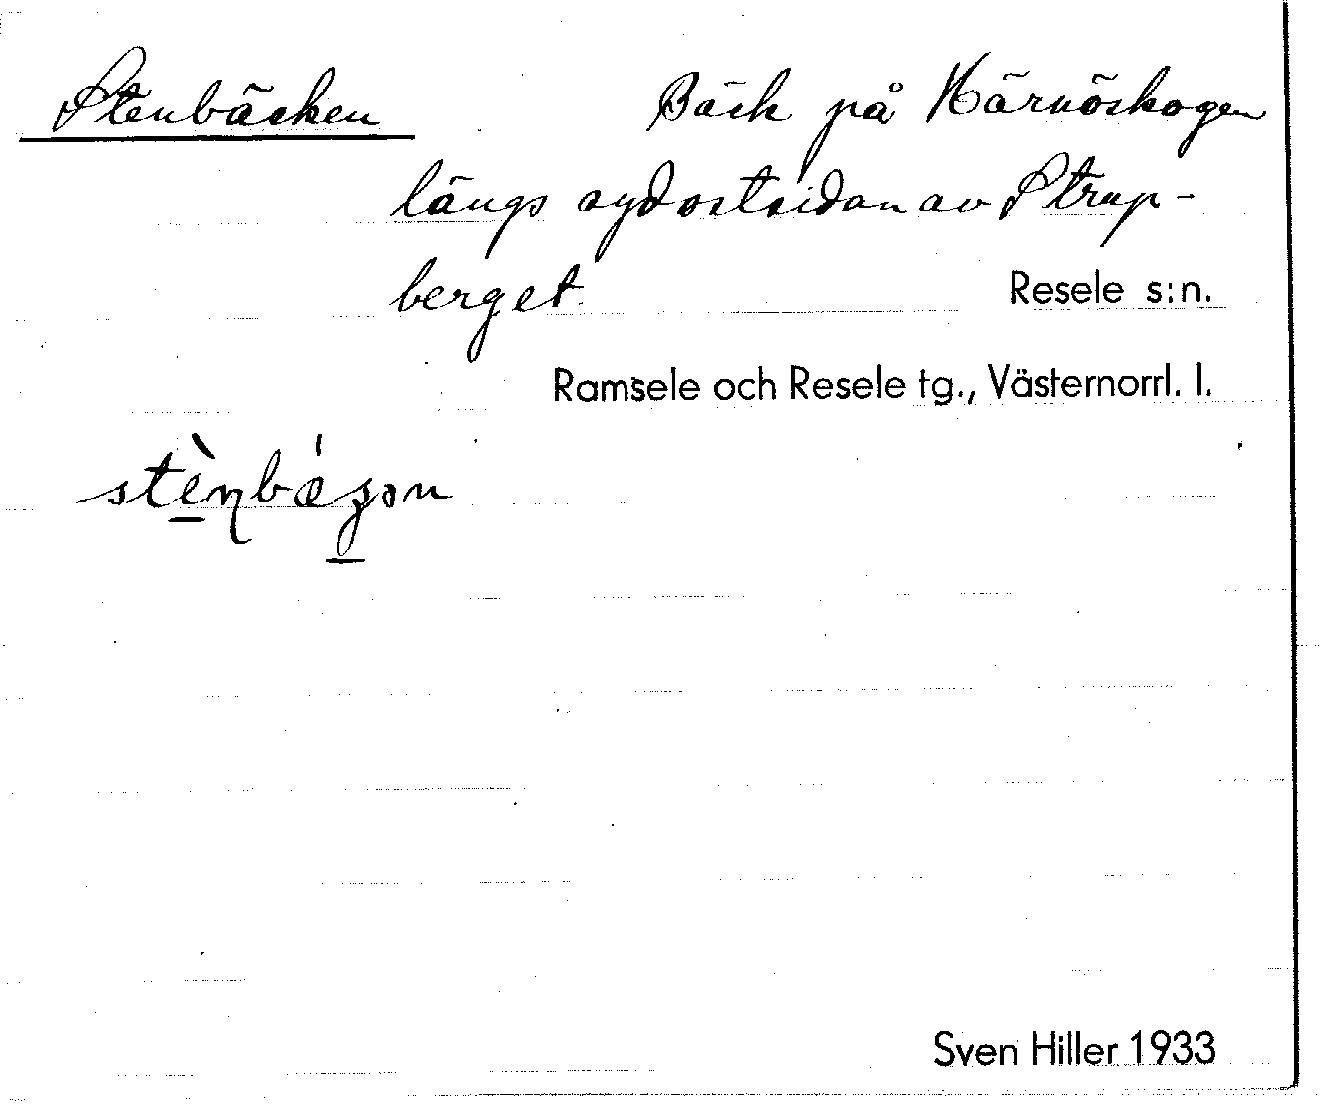 Stenbäcken Bäck på Härnöskogen
längs sydostsidan av Strup-
berget Resele s:n.
Ramsele och Resele tg., Västernorrl. l.
Sven Hiller 1933